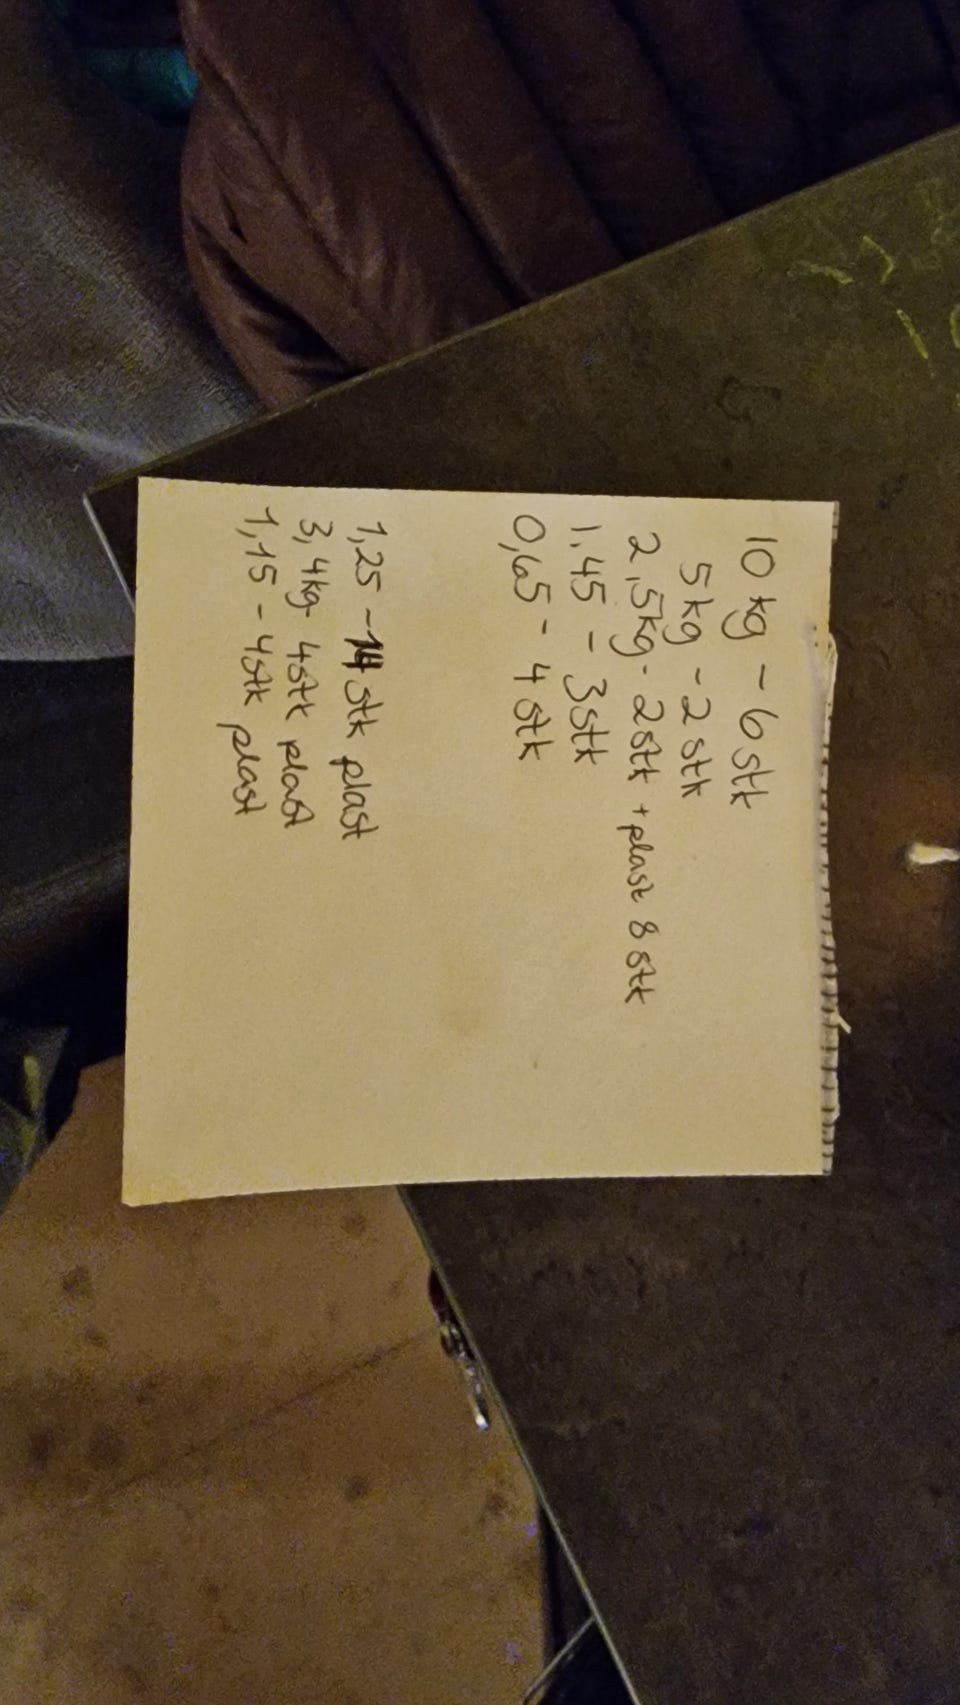 10 kg - 6 stk
5 kg - 2 stk
2,5kg - 2stk + plast 8 stk
1,45 - 3stk
0,65 - 4 stk
1,25 - 14 stk plast
3,4kg 4stk plast
1,15 - 4stk plast